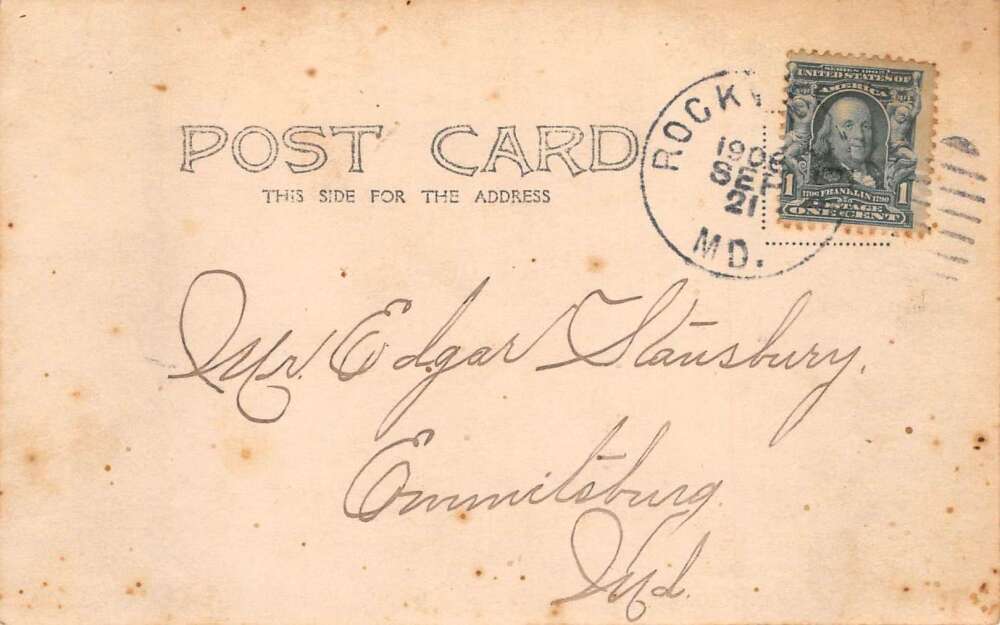 POST CARD
THIS SIDE FOR THE ADDRESS
ROCKV
1906
SEP
21
MD.
SERIES 1902
UNITED STATES OF
AMERICA
1706 FRANKLIN 1790
1 POSTAGE 1
ONE CENT
Mr. Edgar Stansbury,
Emmitsburg
Md.